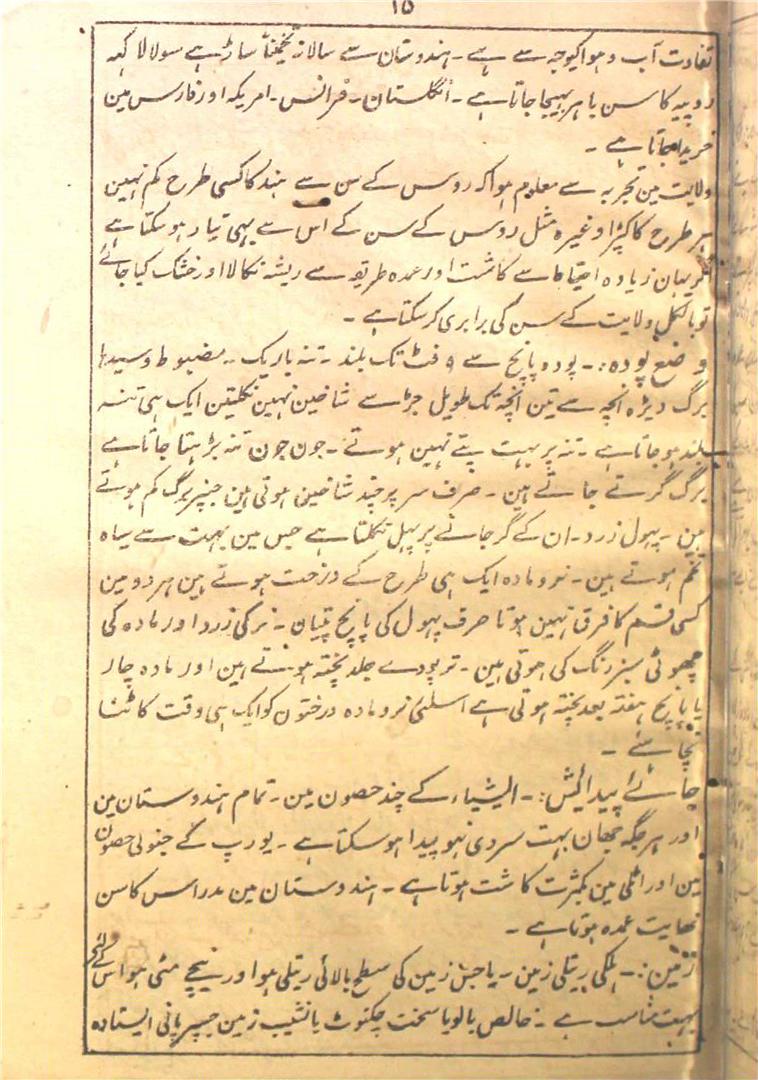 ۱۵
تفاوت آب و ہوا کیوجہ سے ہے ۔ ہندوستان سے سالانہ تخمیناً ساڑہے سولا لاکہہ
روپیہ کا سن باہر بہیجا جاتا ہے ۔ انگلستان ۔ فرانس ۔ امریکہ اور فارس مین
خریدا جاتا ہے ۔
ولایت مین تجربہ سے معلوم ہوا کہ روس کے سن سے ہند کا کسی طرح کم نہین
ہر طرح کا کپڑا وغیرہ مثل روس کے سن کے اس سے بہی تیار ہو سکتا ہے
اگر یہان زیادہ احتیاط سے کاشت اور عمدہ طریقہ سے ریشہ نکالا اور خشک کیا جائے
تو بالکل ولایت کے سن کی برابری کر سکتا ہے ۔
وضع پودہ :۔ پودہ پانچ سے ۹ فٹ تک بلند ۔ تنہ باریک ۔ مضبوط و سیدہا
برگ دیڑہ انچہ سے تین انچہ تک طویل جڑ سے شاخین نہین نکلیتن ایک ہی تنہ
بلند ہو جاتا ہے ۔ تنہ پر بہت پتے نہین ہوتے ۔ جون جون تنہ بڑہتا جاتا ہے
برگ گرتے جاتے ہین ۔ صرف سر پر چند شاخین ہوتی ہین جنپر برگ کم ہوتے
ہین ۔ پہول زرد ۔ ان کے گر جانے پر پہل نکلتا ہے جس مین بہت سے سیاہ
تخم ہوتے ہین ۔ نر و مادہ ایک ہی طرح کے درخت ہوتے ہین ہر دو مین
کسی قسم کا فرق نہین ہوتا صرف پہول کی پانچ پتیان ۔ نر کی زرد اور مادہ کی
چھوٹی سبز رنگ کی ہوتی ہین ۔ نر پودے جلد پختہ ہوتے ہین اور مادہ چار
یا پانچ ہفتہ بعد پختہ ہوتی ہے اسلئی نر و مادہ درختون کو ایک ہی وقت کاٹنا
نچاہئے ۔
جائے پیدائش :۔ ایشیاء کے چند حصون مین ۔ تمام ہندوستان مین
اور ہر جگہ جہان بہت سردی نہو پیدا ہو سکتا ہے ۔ یورپ کے جنوبی حصون
مین اور اٹلی مین بکثرت کاشت ہوتا ہے ۔ ہندوستان مین مدراس کا سن
نہایت عمدہ ہوتا ہے ۔
زمین :۔ ہلکی ریتلی زمین ۔ یا جس زمین کی سطح بالائی ریتلی ہو اور نیچے مٹی ہو اس کے لئے
بہت مناسب ہے ۔ خالص بالو یا سخت چکنوٹ یا نشیب زمین جسپر پانی ایستادہ